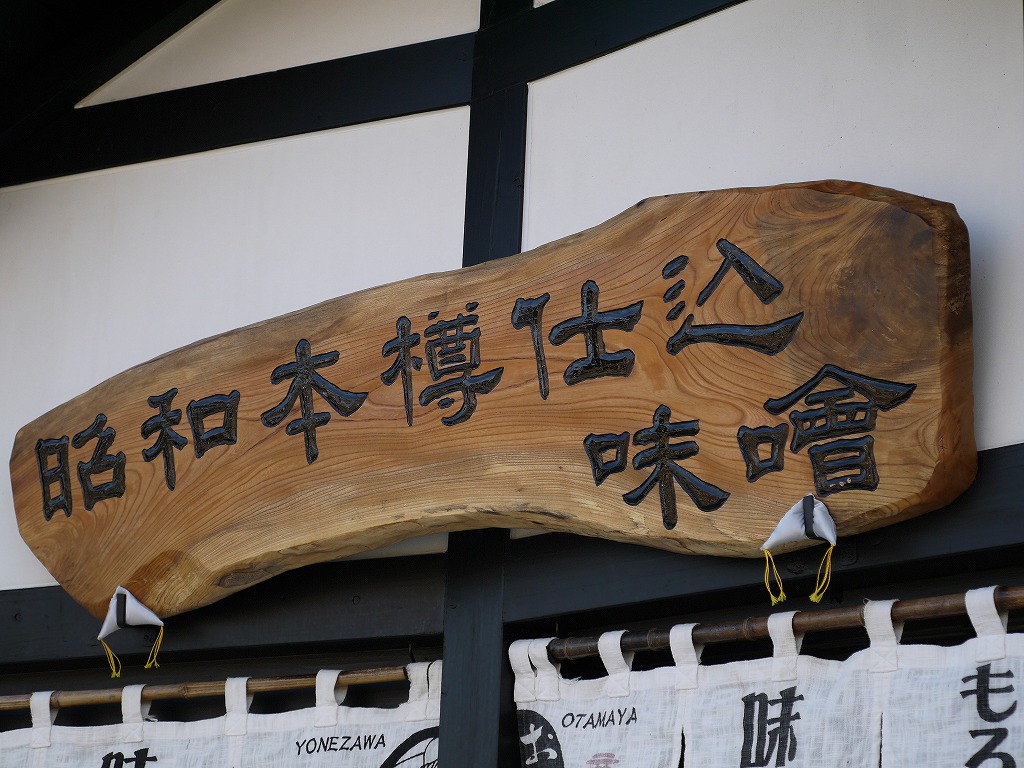 昭和本樽仕込
味噌
YONEZAWA
味
OTAMAYA
お
味
もろ